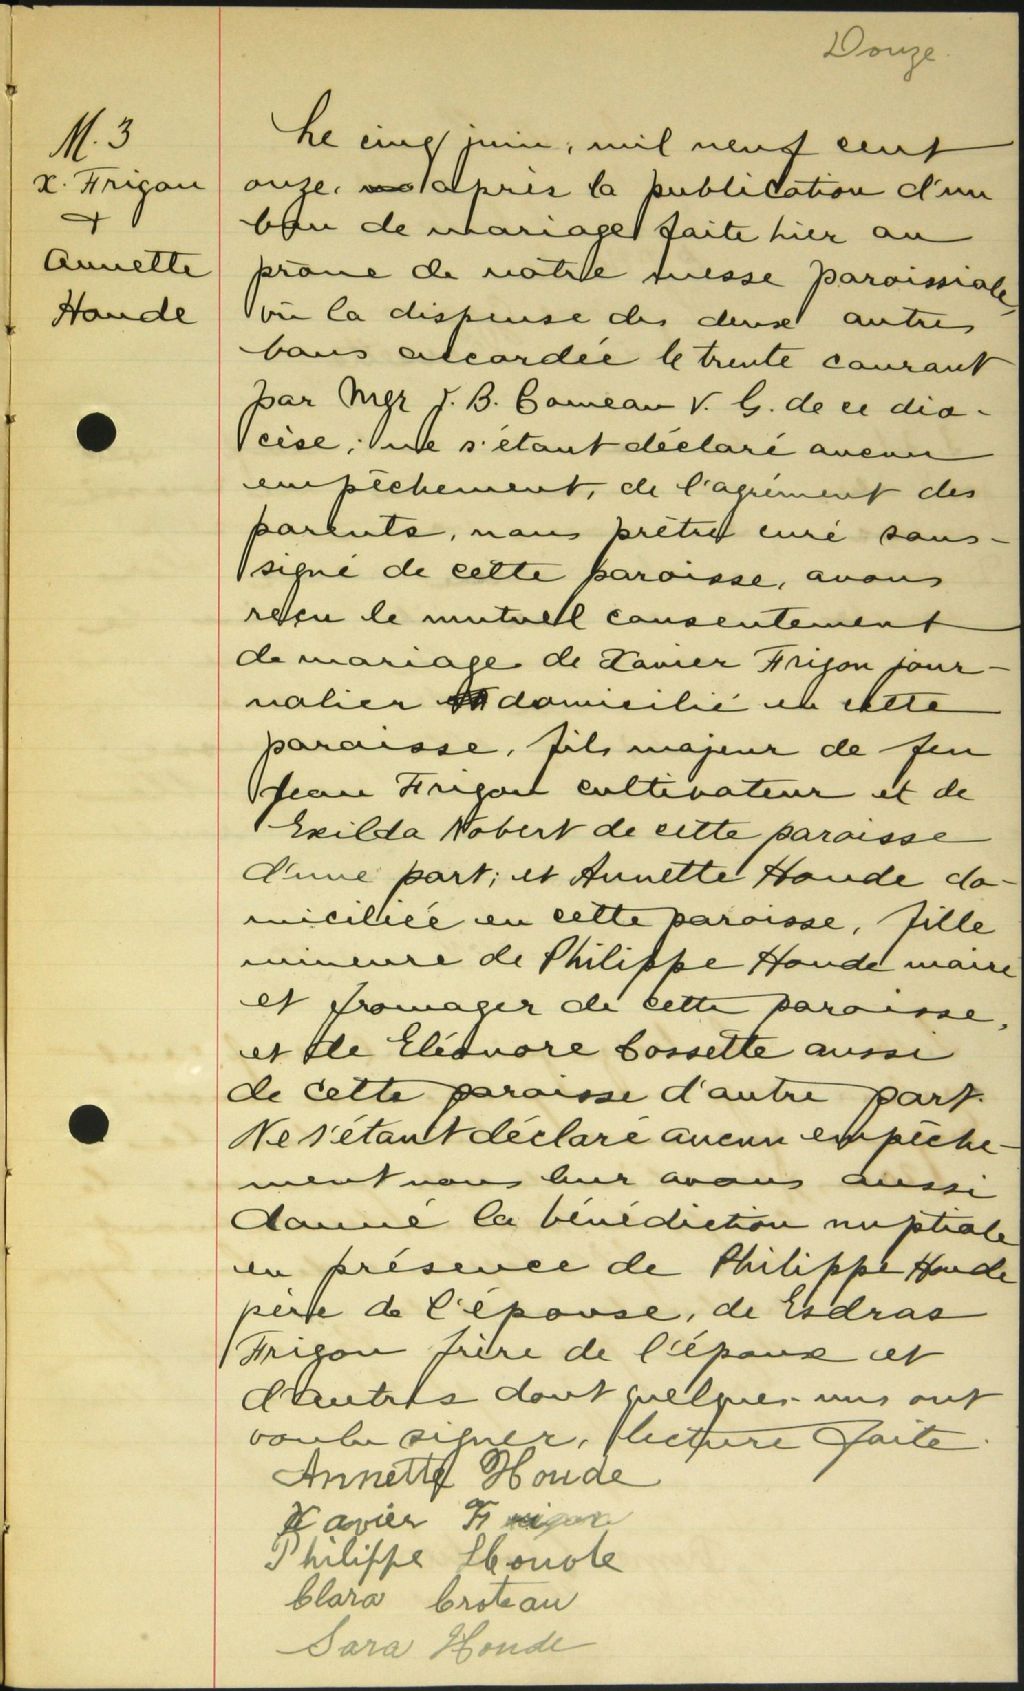 Douze.
M. 3
X. Frigon
+
Annette
Houde
Le cinq juin, mil neuf cent
onze, après la publication d'un
ban de mariage faite hier au
prône de notre messe paroissiale,
vû la dispense des deux autres
bans accordée le trente courant
par Mgr J. B. Comeau V. G. de ce dio-
cèse; ne s'étant déclaré aucun
empêchement, de l'agrément des
parents, nous prêtre curé sous-
signé de cette paroisse, avons
reçu le mutuel consentement
de mariage de Xavier Frigon jour-
nalier domicilié en cette
paroisse, fils majeur de feu
Jean Frigon cultivateur et de
Exilda Nobert de cette paroisse
d'une part; et Annette Houde do-
miciliée en cette paroisse, fille
mineure de Philippe Houde maire
et fromager de cette paroisse,
et de Eléonore Cossette aussi
de cette paroisse d'autre part.
Ne s'étant déclaré aucun empêche-
ment nous leur avons aussi
donné la bénédiction nuptiale
en présence de Philippe Houde
père de l'épouse, de Esdras
Frigon frère de l'époux et
d'autres dont quelques-uns ont
voulu signer, lecture faite.
Annette Houde
Xavier Frigon
Philippe Houde
Clara Croteau
Sara Houde